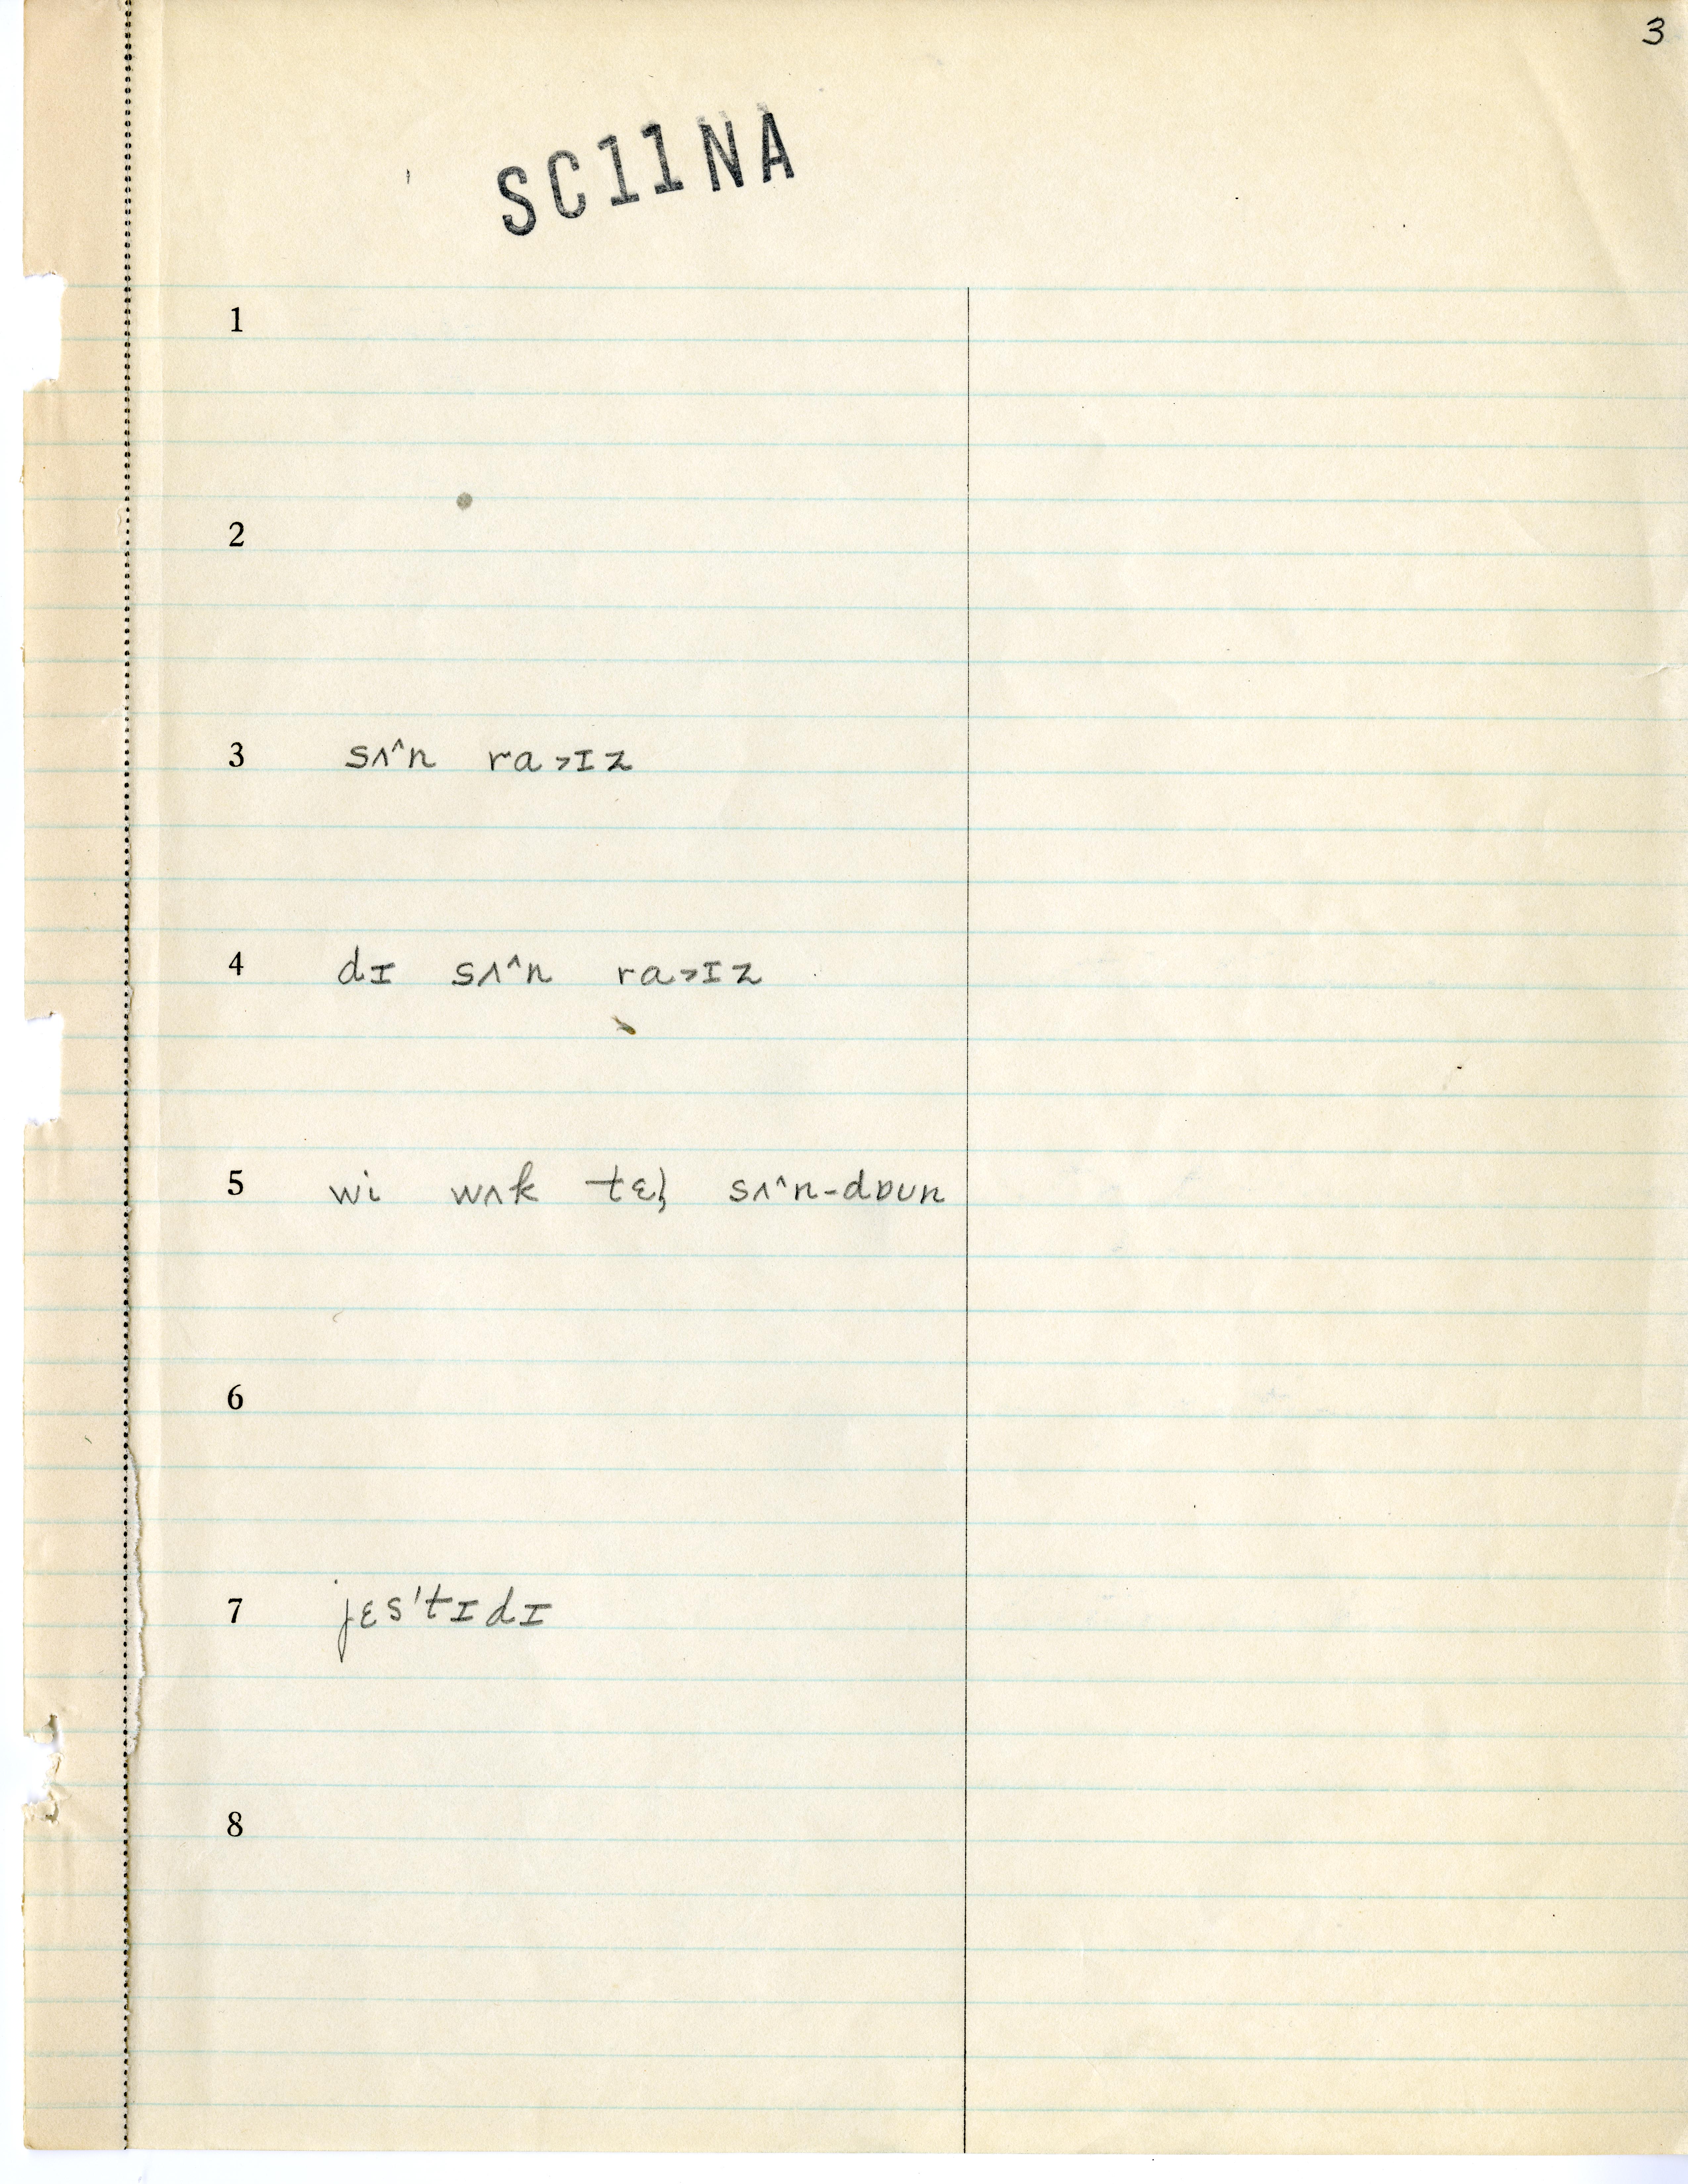 3
SC11NA
1
2
3 sʌ^n ra>ɪz
4 dɪ sʌ^n ra>ɪz
5 wi wʌk tɛl̥ sʌ^n-dɒʊn
6
7 jɛs'tɪdɪ
8